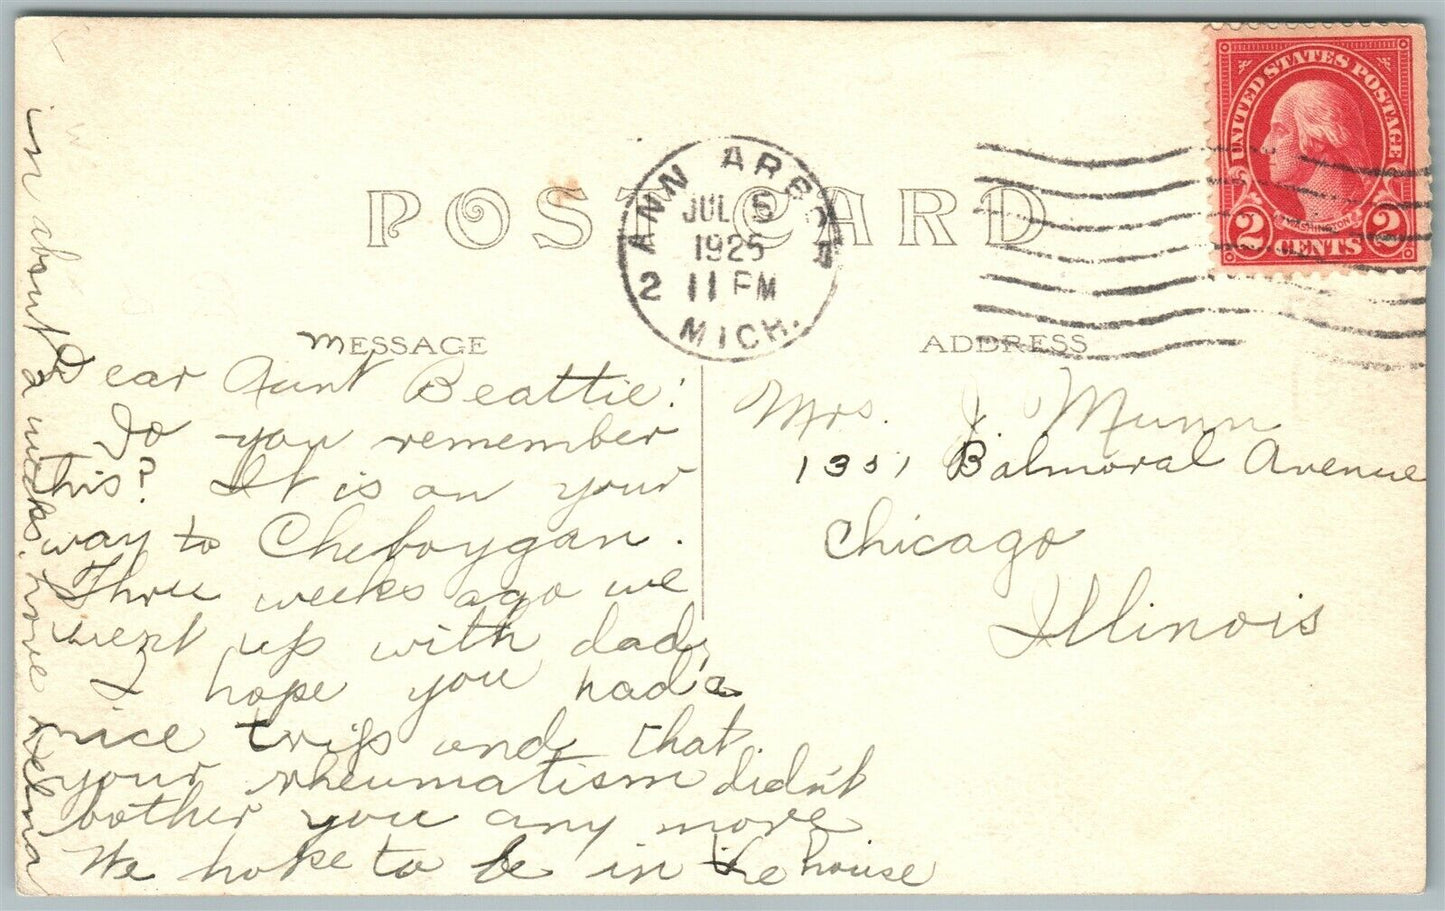 POST CARD
ANN ARBOR
JUL 5
1925
2 11 PM
MICH.
UNITED STATES POSTAGE
WASHINGTON
2 CENTS 2
MESSAGE
ADDRESS
Dear Aunt Beattie:
Do you remember
this? It is on your
way to Cheboygan.
Three weeks ago we
went up with dad,
I hope you had a
nice trip and that
your rheumatism didn't
bother you any more.
We hope to be in the house
in about
2 weeks. Love
Mrs. J. Munn
1331 Balmoral Avenue
Chicago
Illinois